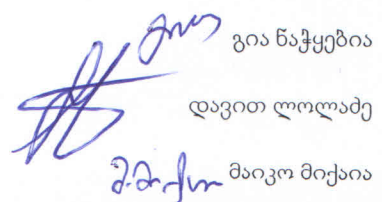 გია ნაჭყებია
დავით ლოლაძე
მაიკო მიქაია